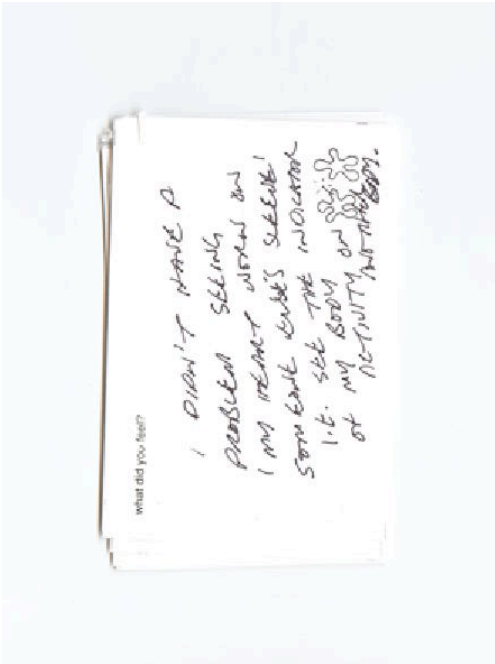 what did you feel?
I DIDN'T HAVE A
PROBLEM SEEING
/ MY HEART WORN ON
SOMEONE ELSE'S SLEEVE!
I.E. SEE THE INDICATOR
OF MY BODY ON
ACTIVITY ANOTHER
BODY.